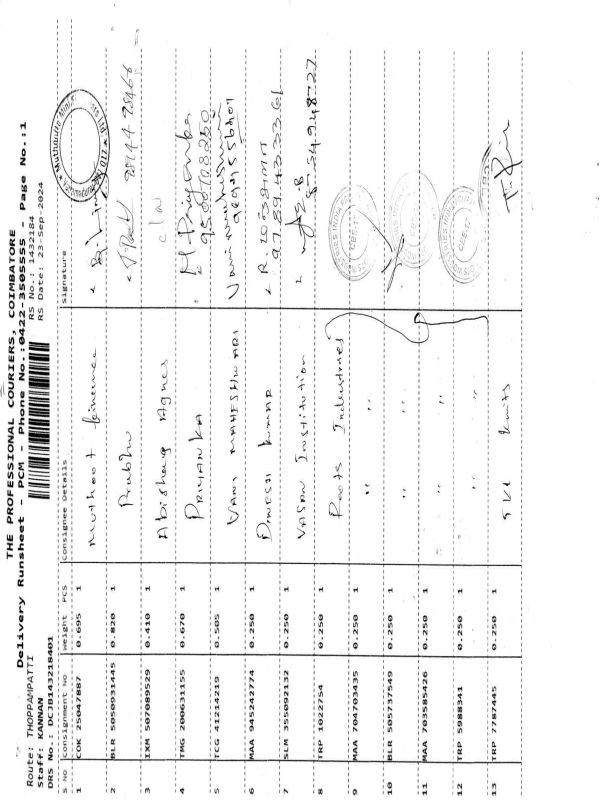 THE PROFESSIONAL COURIERS, COIMBATORE
Delivery Runsheet - PCM - Phone No.:0422-3505555 - Page No.:1
Route: THOPPAMPATTI
RS No.: 1432184
Staff: KANNAN
RS Date: 23-Sep-2024
DRS No.: DCJB143218401
S No Consignment No Weight PCS Consignee Details Signature
1 COK 25047887 0.695 1 Muthoot finance
2 BLR 5050931445 0.820 1 Prabhu
3 IXM 507089529 0.410 1 Abishag Agnes
4 TMG 200631155 0.670 1 PRIYANKA M. Priyanka
9500708250
5 TCG 41214219 0.505 1 VANI MAHESHWARI
6 MAA 945242774 0.250 1 DINESH KUMAR
7 SLM 355092132 0.250 1 VASAN Institution
8 TRP 1022754 0.250 1 Roots Industries
9 MAA 704703435 0.250 1 " "
10 BLR 505737549 0.250 1 " "
11 MAA 703585426 0.250 1 " "
12 TRP 5988341 0.250 1 " "
13 TRP 7787445 0.250 1 SKL knits